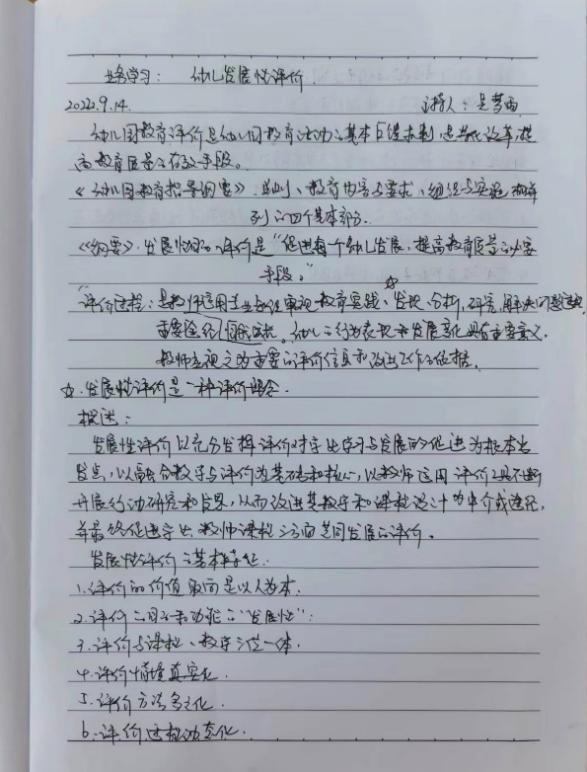 业务学习： 幼儿发展性评价.
2022.9.14. 主持人：
幼儿园教育评价是幼儿园教育活动之基本环节 改革提
高教育质量之有效手段。
《幼儿园教育指导纲要》总则、教育内容与要求、组织与实施
列的四个基本部分.
《纲要》.发展性的评价是“促进每个幼儿发展、提高教育质量之必要
手段。”
“评价过程：是教师运用专业知识审视教育实践、发现、分析、研究、解决问题
重要途径 幼儿之行为表现和发展变化具有重要意义,
教师应视之为重要的评价信息和改进工作之依据.
☆.发展性评价是一种评价理念.
概述：
发展性评价以充分发挥评价对学生学习与发展的促进为根本出
发点,以融合教学与评价为基础和核心,以教师运用评价工具不断
开展行动研究和反思,从而改进其教学和课程设计为中介或途径,
并最终促进学生、教师课程三方面共同发展的评价。
发展性评价之基本特征.
1.评价的价值取向是以人为本.
2.评价 功能之“发展性”:
3.评价与课程、教学三位一体.
4.评价情境真实化.
5.评价方法多元化.
6.评价过程动态化.